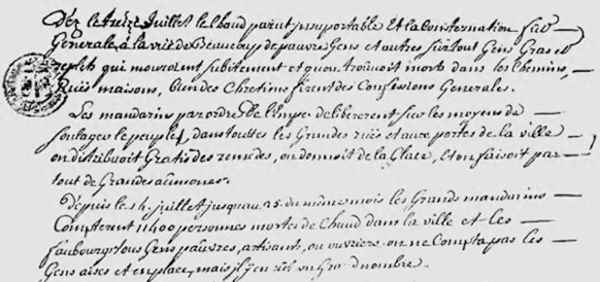 Dèz le treize Juillet le Chaud parut insuportable Et la Consternation fut
Generale, à la vüe de Beaucoup de pauvres Gens et autres surtout Gens Gras et
replets qui mouroient subitement et qu'on trouvoit morts dans les chemins,
Ruës maisons, bien des Chretiens firent des Confessions Generales.
Les mandarins par ordre de l'Emp.r delibererent sur les moyens de
soulager le peuple, dans touttes les Grandes rües et aux portes de la ville
on distribuoit Gratis des remedes, on donnoit de la Glace, et on faisoit par
tout de Grandes aumones.
depuis le 14 juillet jusqu'au 25 du même mois les Grands mandarins
Compterent 11400 personnes mortes de Chaud dans la ville et les
faubourgs tous Gens pauvres, artisants, ou ouvriers on ne Compta pas les
Gens aisés et en place, mais il y en eût un Gra.d nombre.